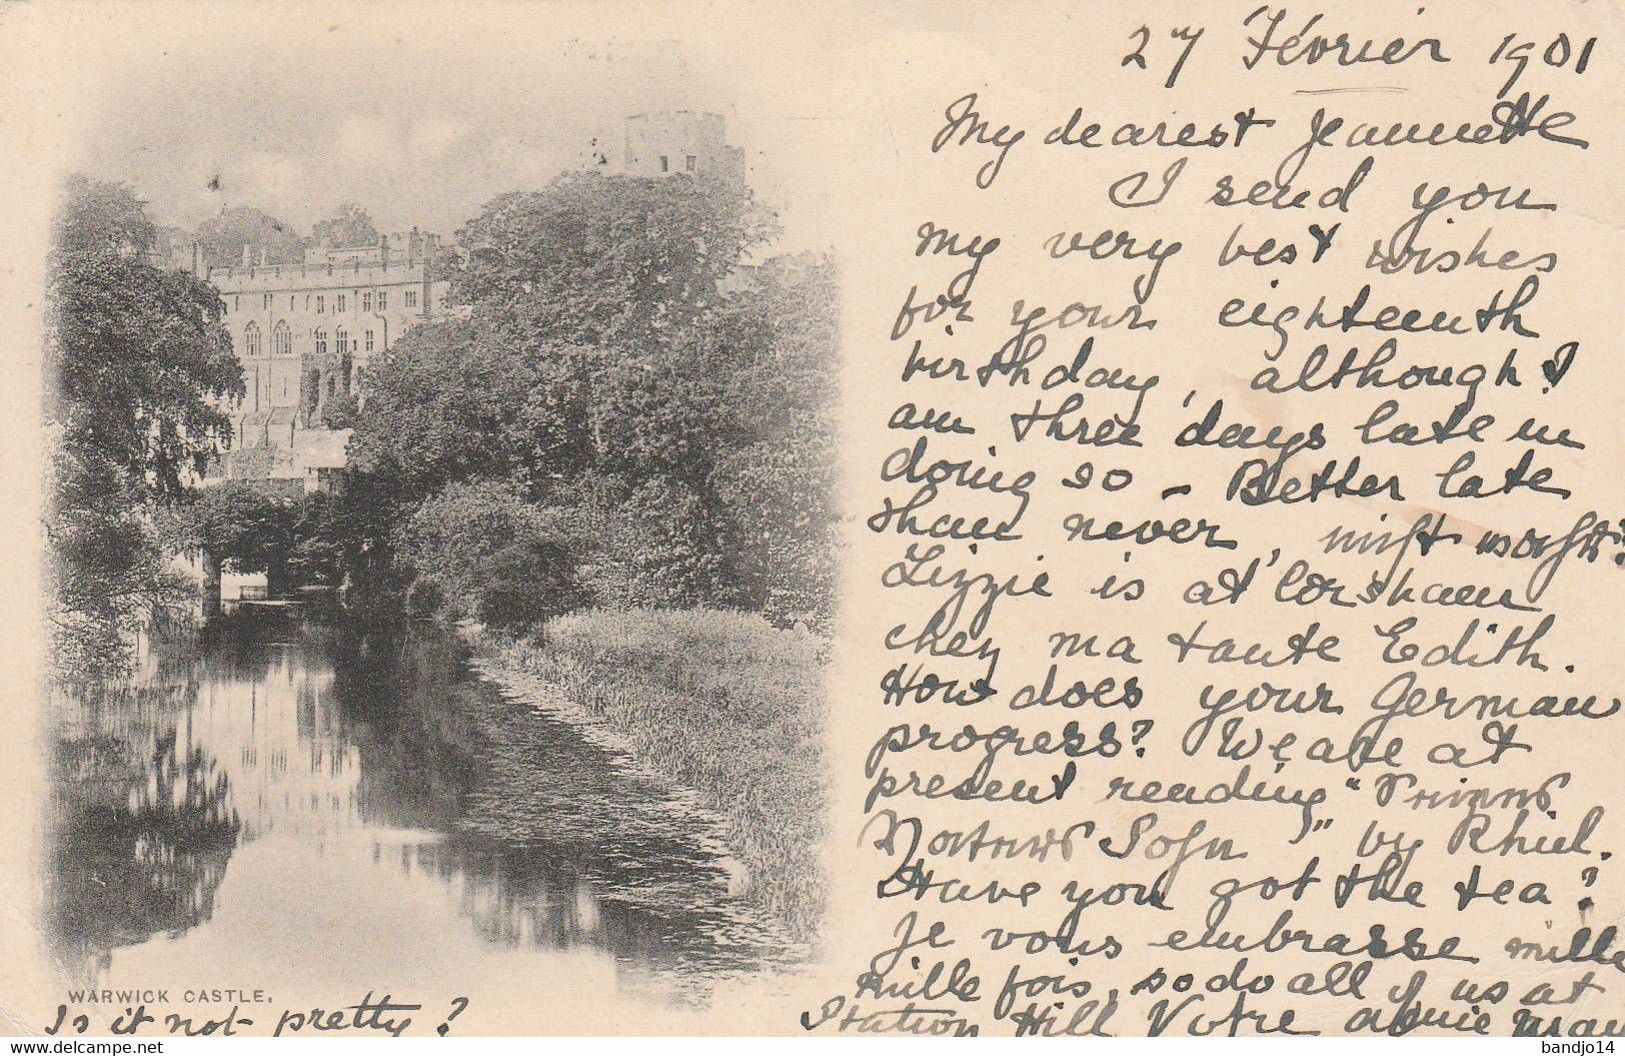 27 Février 1901
My dearest Jeannette
I send you
my very best wishes
for your eighteenth
birthday, although I
am three days late in
doing so – Better late
than never, nicht wahr?
Lizzie is at Corsham
chez ma tante Edith.
How does your German
progress? We are at
present reading "
Sohn" by Rhiel.
Have you got the tea?
Je vous embrasse mille
mille fois, so do all of us at
Station Hill Votre amie
WARWICK CASTLE.
Is it not pretty?
bandjo14